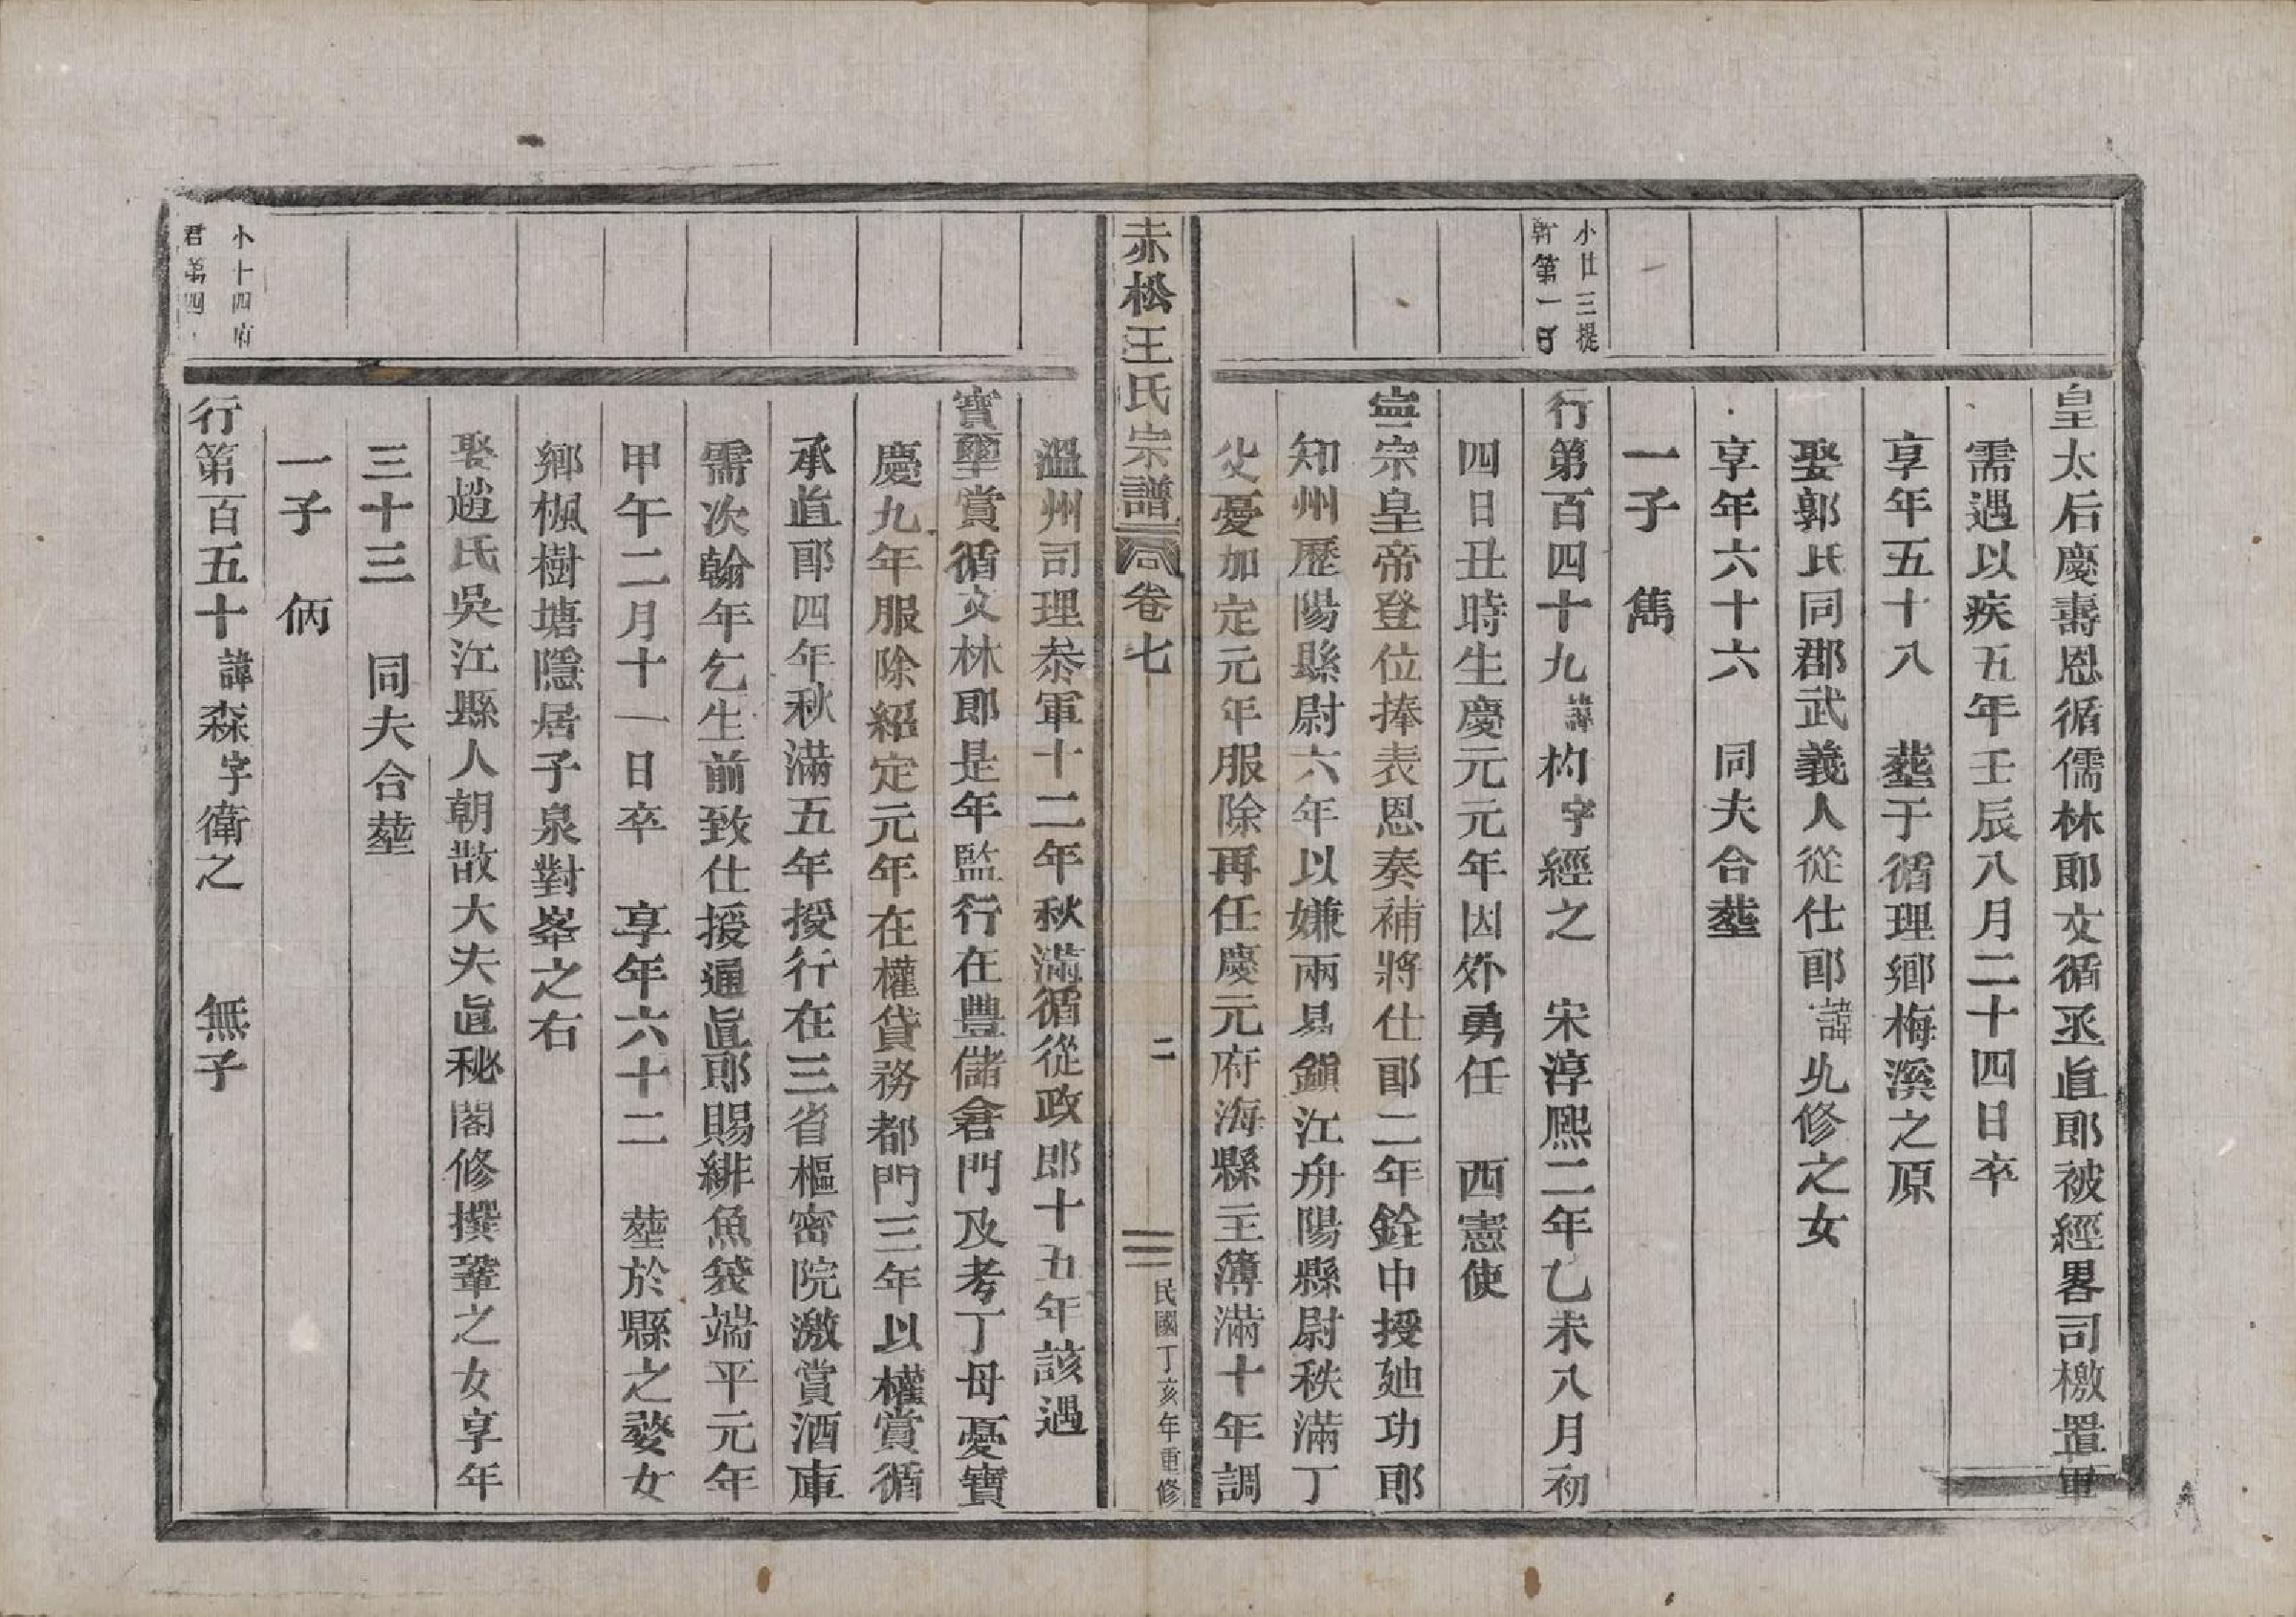 皇太后慶壽恩循儒林郎文循丞直郎被經畧司檄置軍
需遇以疾五年壬辰八月二十四日卒
享年五十八　塟于循理鄉梅溪之原
娶郭氏同郡武義人從仕郎諱允修之女
享年六十六　同夫合塟
一子　雋
小廿三提
幹第一日
行第百四十九諱枃字經之　宋淳熙二年乙未八月初
四日丑時生慶元元年因外舅任　西憲使
寧宗皇帝登位捧表恩奏補將仕郎二年銓中授廸功郎
知州歷陽縣尉六年以嫌兩易鎭江丹陽縣尉秩滿丁
父憂加定元年服除再任慶元府海縣主簿滿十年調
赤松王氏宗譜　卷七　二　民國丁亥年重修
溫州司理叅軍十二年秋滿循從政郎十五年該遇
寶璽賞循文林郎是年監行在豐儲倉門及考丁母憂寶
慶九年服除紹定元年在權貨務都門三年以權賞循
承直郎四年秋滿五年授行在三省樞密院激賞酒庫
需次翰年乞生前致仕授通直郎賜緋魚袋端平元年
甲午二月十一日卒　享年六十二　塟於縣之婺女
鄉楓樹塘隱居子泉對峯之右
娶趙氏吳江縣人朝散大夫直秘閣修撰鞏之女享年
三十三　同夫合塟
一子　怲
小十四府
君第四
行第百五十諱森字衛之　無子